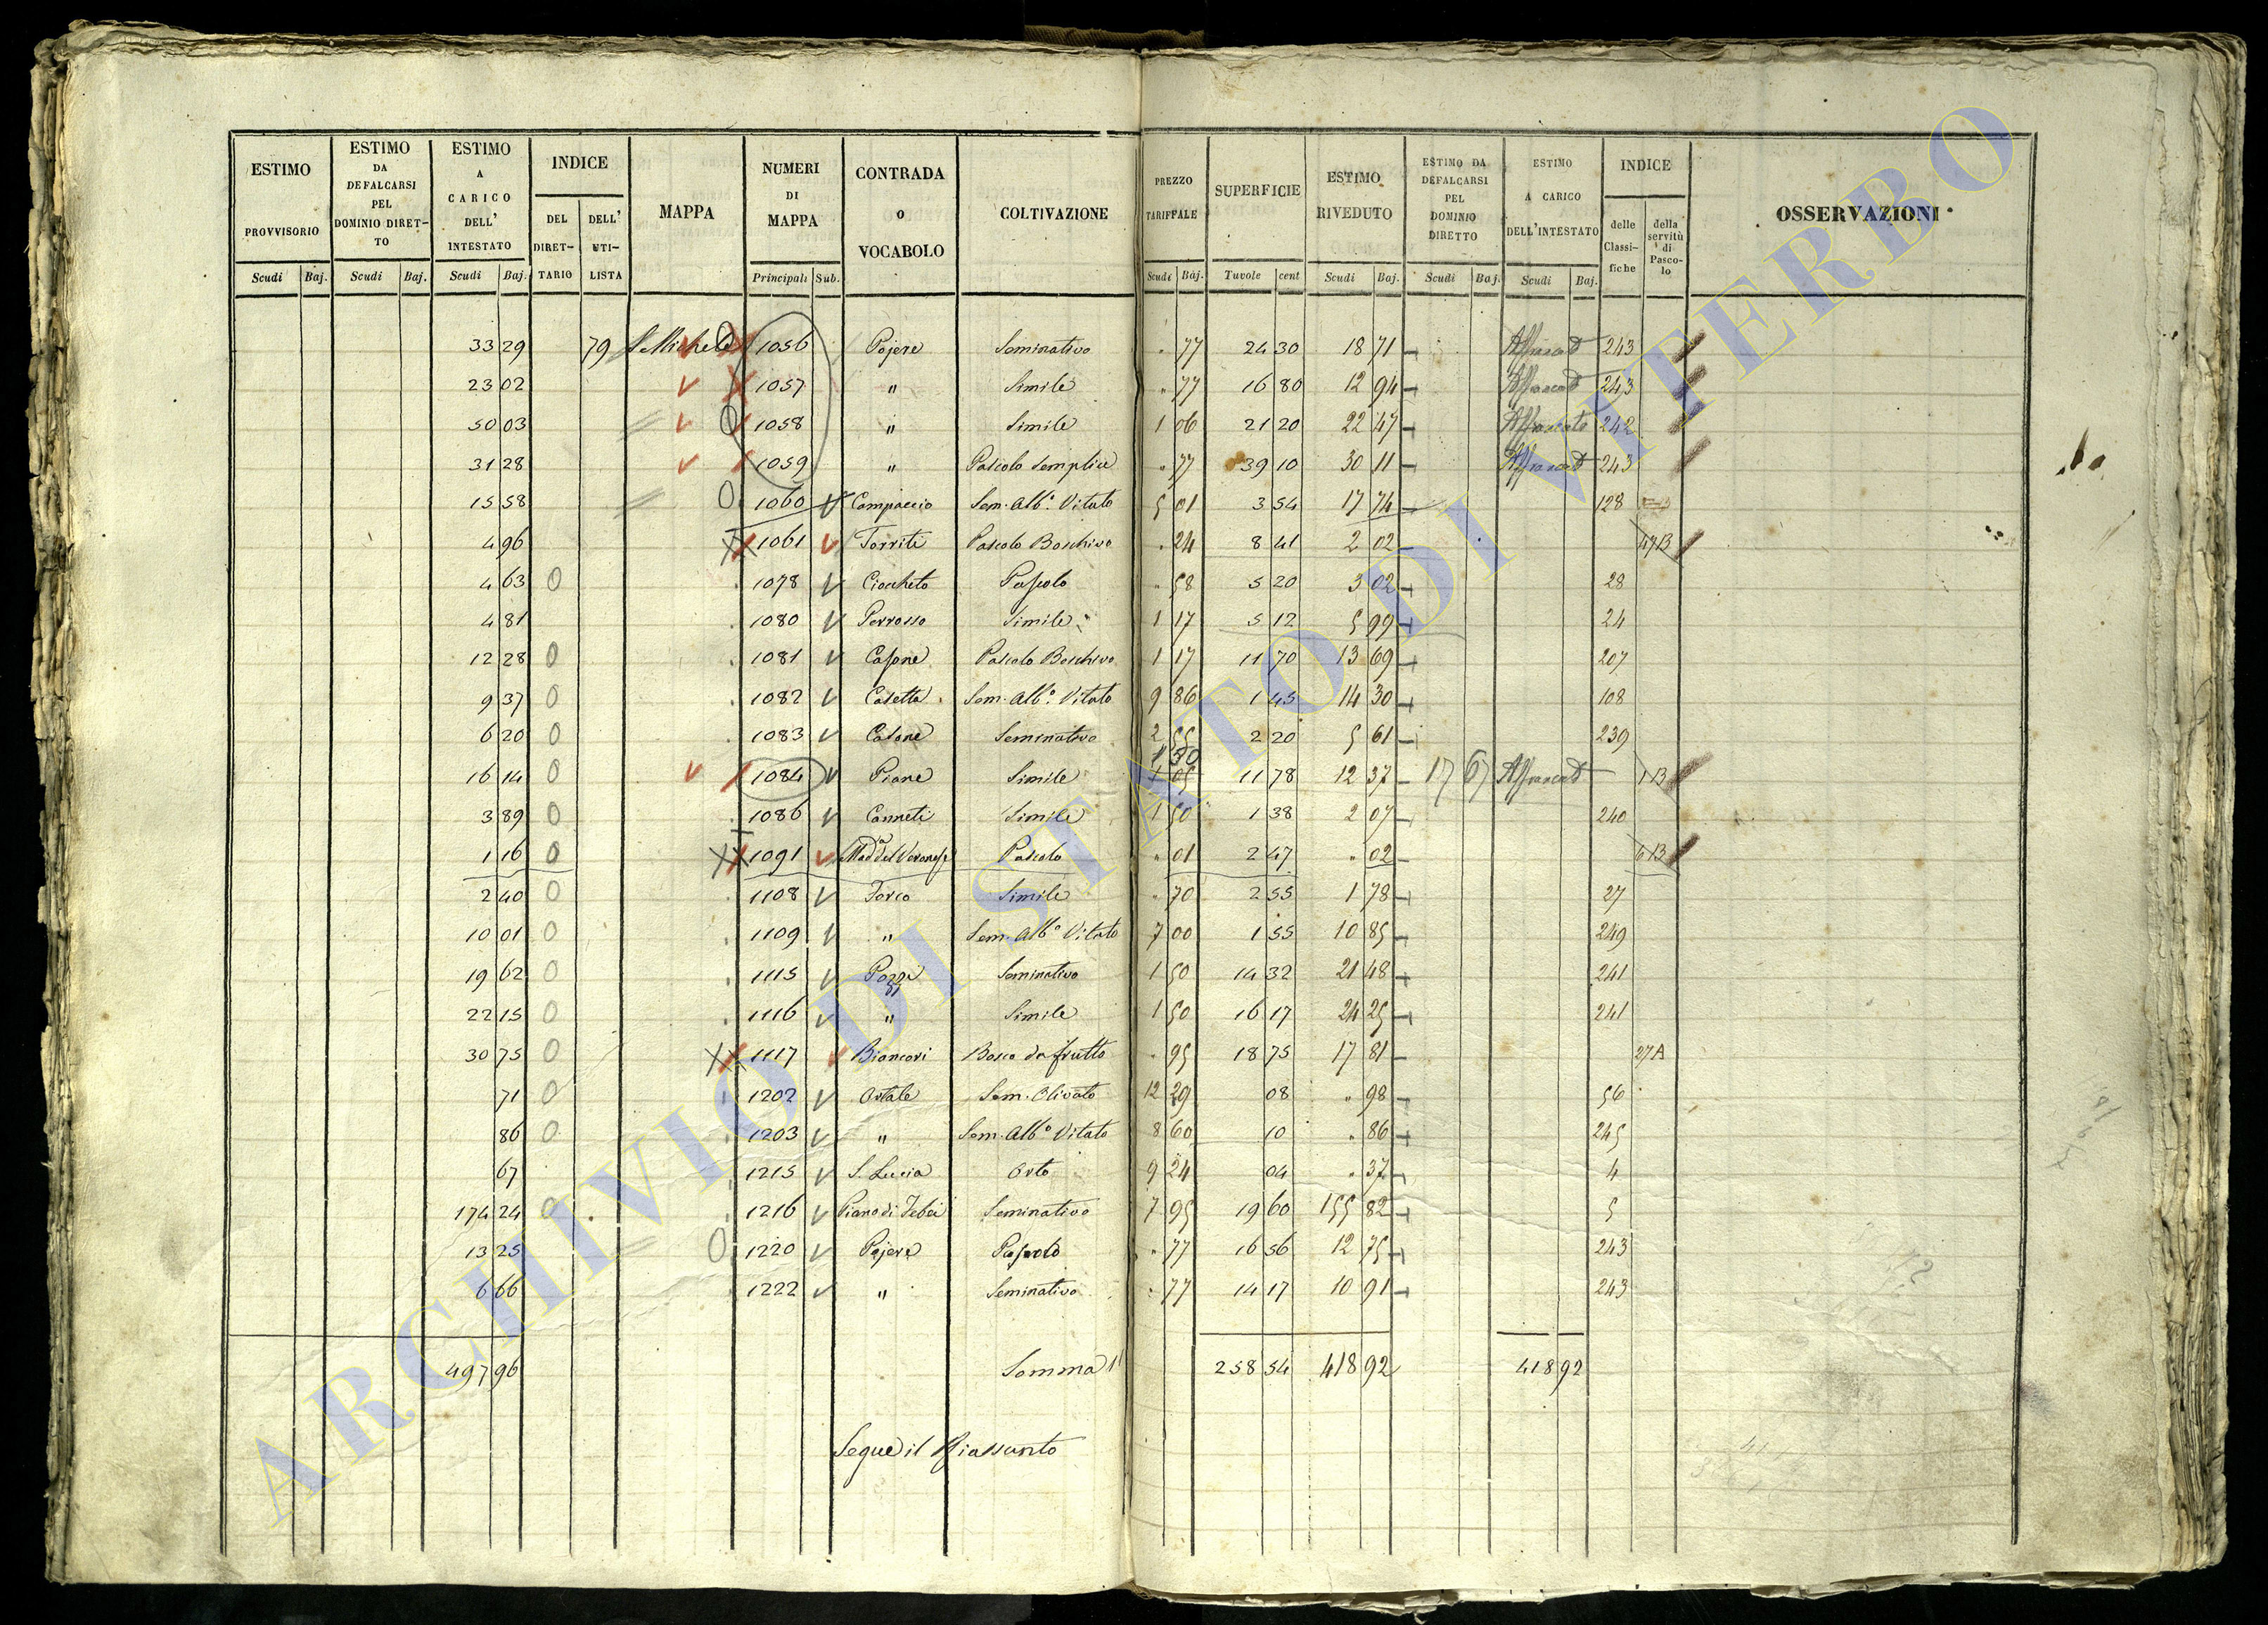 ESTIMO PROVVISORIO | ESTIMO DA DEFALCARSI PEL DOMINIO DIRETTO | ESTIMO A CARICO DELL' INTESTATO | INDICE | MAPPA | NUMERI DI MAPPA | CONTRADA O VOCABOLO | COLTIVAZIONE | PREZZO TARIFFALE | SUPERFICIE | ESTIMO RIVEDUTO | ESTIMO DA DEFALCARSI PEL DOMINIO DIRETTO | ESTIMO A CARICO DELL'INTESTATO | INDICE | OSSERVAZIONI
DEL DIRETTARIO | DELL' UTILISTA | delle Classifiche | della servitù di Pascolo
Scudi | Baj. | Scudi | Baj. | Scudi | Baj. | Principali | Sub. | Scudi | Baj. | Tavole | cent | Scudi | Baj. | Scudi | Baj. | Scudi | Baj.
33 29 79 S. Michele 1056 Pojere Seminativo " 77 24 30 18 71 243
23 02 1057 " Simile " 77 16 80 12 94 243
50 03 1058 " Simile 1 06 21 20 22 47 242
31 28 1059 " Pascolo semplice " 77 39 10 30 11 243
15 58 0 1060 Campaccio Sem. Alb.º Vitato 5 01 3 54 17 74 128
4 96 1061 Torriti Pascolo Boschivo " 24 8 41 2 02 47B
4 63 0 1078 Ciocheto Pascolo " 58 5 20 3 02 28
4 81 1080 Perrosso Simile 1 17 5 12 5 99 24
12 28 0 1081 Casone Pascolo Boschivo 1 17 11 70 13 69 207
9 37 0 1082 Casetta Sem. Alb.º Vitato 9 86 1 45 14 30 108
6 20 0 1083 Casone Seminativo 2 55 2 20 5 61 239
16 14 0 1084 Piane Simile 1 05 11 78 12 37 17 67 1B
3 89 0 1086 Canneti Simile 1 50 1 38 2 07 240
1 16 0 1091 Mad.ª del Veronese Pascolo " 01 2 47 " 02 6B
2 40 0 1108 Forco Simile " 70 2 55 1 78 27
10 01 0 1109 " Sem. Alb.º Vitato 7 00 1 55 10 85 249
19 62 0 1115 Seminativo 1 50 14 32 21 48 241
22 15 0 1116 " Simile 1 50 16 17 24 25 241
30 75 0 1117 Biancari Bosco da frutto " 95 18 75 17 81 27A
71 0 1202 Ortale Sem. Olivato 12 29 08 " 98 56
86 0 1203 " Sem. Alb.º Vitato 8 60 10 " 86 245
67 1215 S. Lucia Orto 9 24 04 " 37 4
174 24 0 1216 Seminativo 7 95 19 60 155 82 5
13 25 0 1220 Pojere Pascolo " 77 16 56 12 75 243
6 66 1222 " Seminativo " 77 14 17 10 91 243
497 96 Somma 258 54 418 92 418 92
Segue il Riassunto
ARCHIVIO DI STATO DI VITERBO